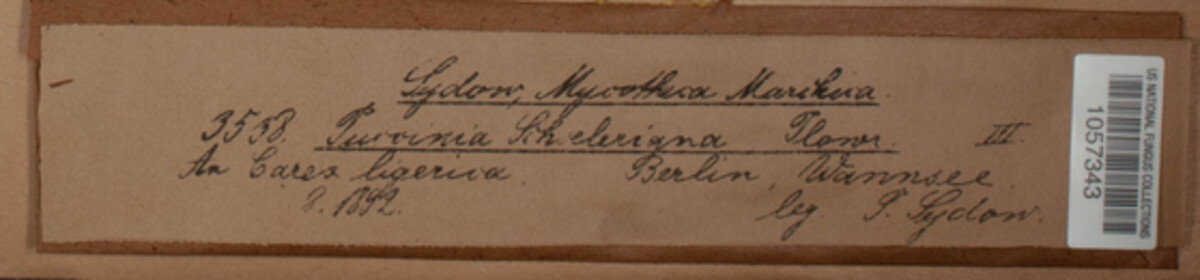 Sydow, Mycotheca Marchica.
3538. Puccinia Schoeleriana Plowr. III.
An Carex ligerica. Berlin, Wannsee.
8. 1892. leg. P. Sydow.
US NATIONAL FUNGUS COLLECTIONS
1057343